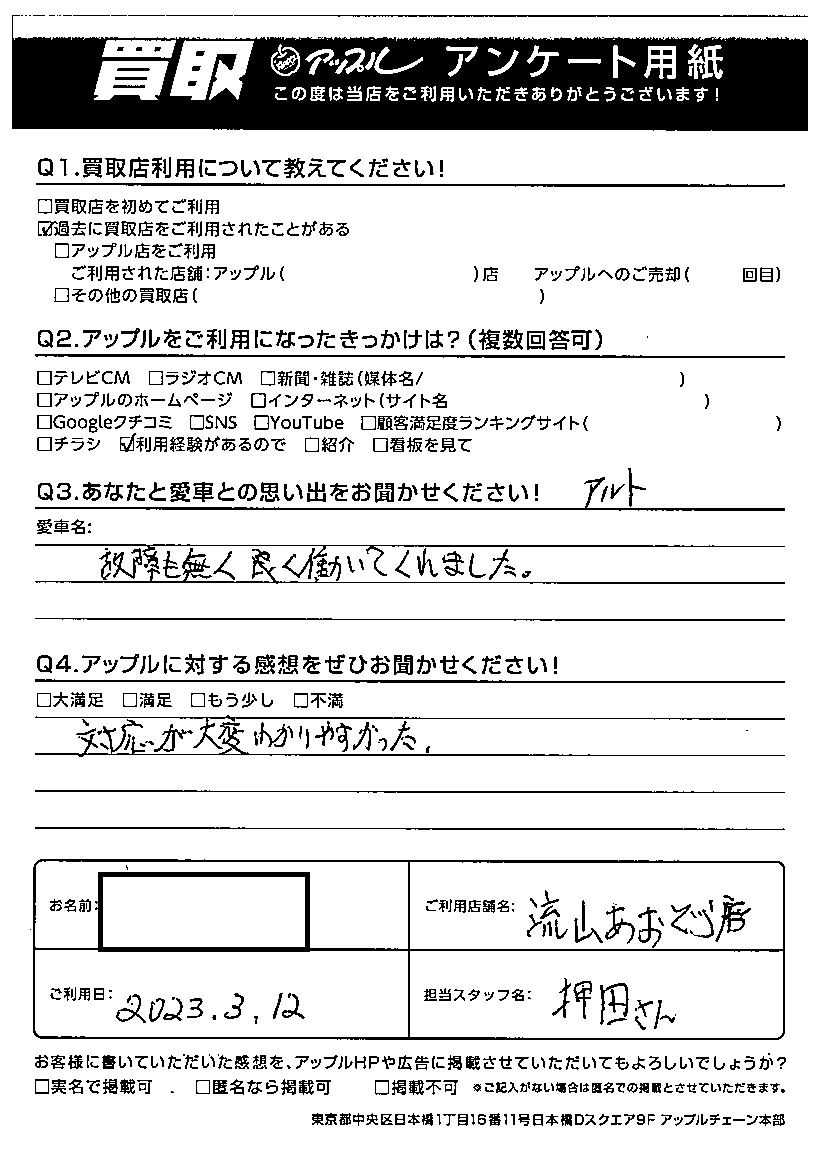 買取 アップル アンケート用紙
この度は当店をご利用いただきありがとうございます!
Q1.買取店利用について教えてください!
□買取店を初めてご利用
☑過去に買取店をご利用されたことがある
□アップル店をご利用
ご利用された店舗:アップル( )店 アップルへのご売却( 回目)
□その他の買取店( )
Q2.アップルをご利用になったきっかけは?(複数回答可)
□テレビCM □ラジオCM □新聞・雑誌(媒体名/ )
□アップルのホームページ □インターネット(サイト名 )
□Googleクチコミ □SNS □YouTube □顧客満足度ランキングサイト( )
□チラシ ☑利用経験があるので □紹介 □看板を見て
Q3.あなたと愛車との思い出をお聞かせください! アルト
愛車名:
故障も無く良く働いてくれました。
Q4.アップルに対する感想をぜひお聞かせください!
□大満足 □満足 □もう少し □不満
対応が大変わかりやすかった.
お名前: ご利用店舗名: 流山あおぞら店
ご利用日: 2023.3.12 担当スタッフ名: 押田さん
お客様に書いていただいた感想を、アップルHPや広告に掲載させていただいてもよろしいでしょうか?
□実名で掲載可 . □匿名なら掲載可 □掲載不可 ※ご記入がない場合は匿名での掲載とさせていただきます。
東京都中央区日本橋1丁目16番11号日本橋Dスクエア9F アップルチェーン本部